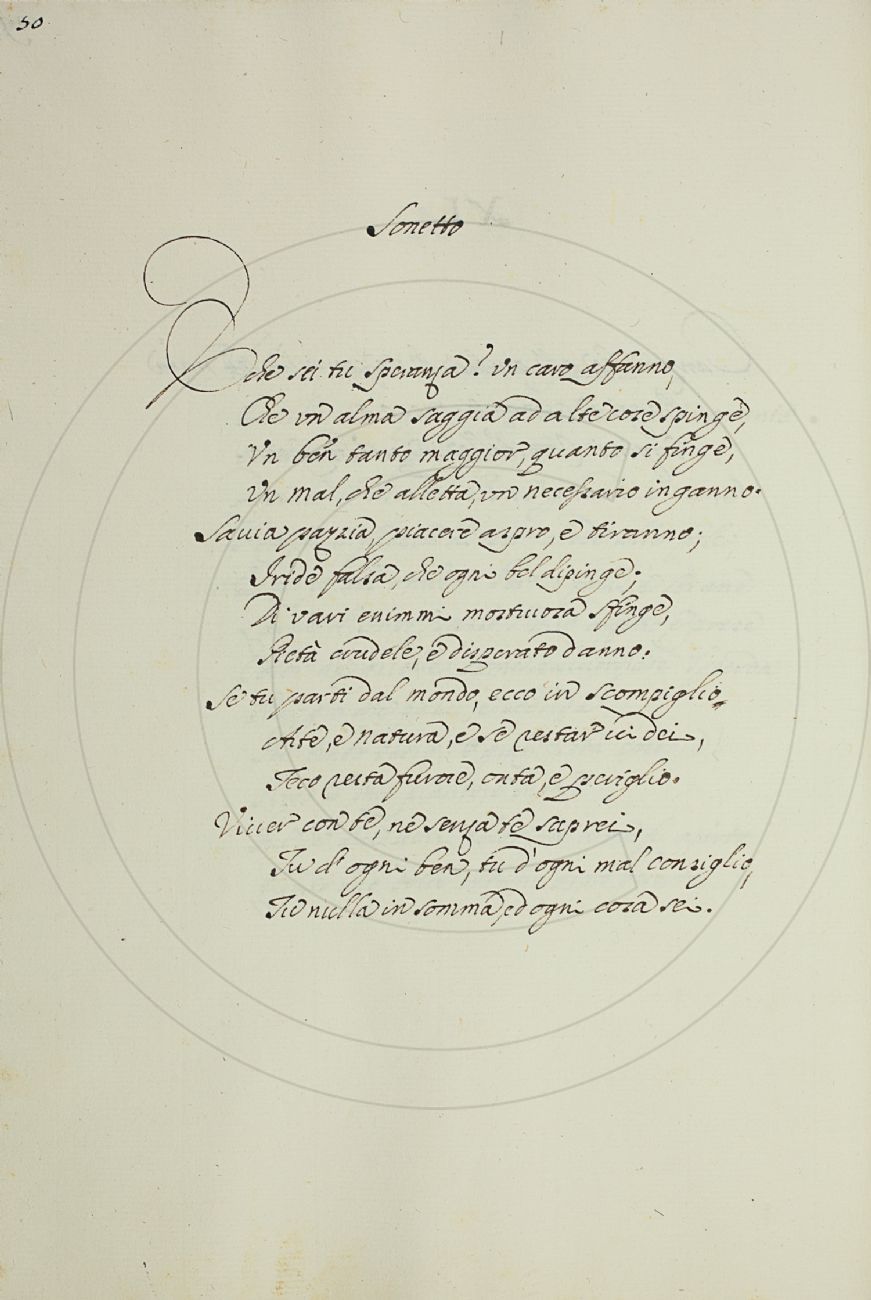 50
Sonetto
E che sei tu speranza? un caro affanno,
Che un alma saggia ad alte cose spinge,
Un ben tanto maggior, quanto si finge,
Un mal, che alletta, un necessario inganno.
Savia pazzia, piacere aspro, e tiranno;
Iride falsa, che ogni bel dipinge;
Di vari enimmi mostruosa sfinge,
Pietà crudele, e disperato danno.
Se tu parti dal mondo, ecco in scompiglio
Arte, e Natura, e se restar vi dei,
Teco resta furore, onta, e periglio.
Viver con te, ne senza te saprei,
Tu d'ogni ben, tu d'ogni mal consiglio,
Tu nulla in somma, ed ogni cosa sei.